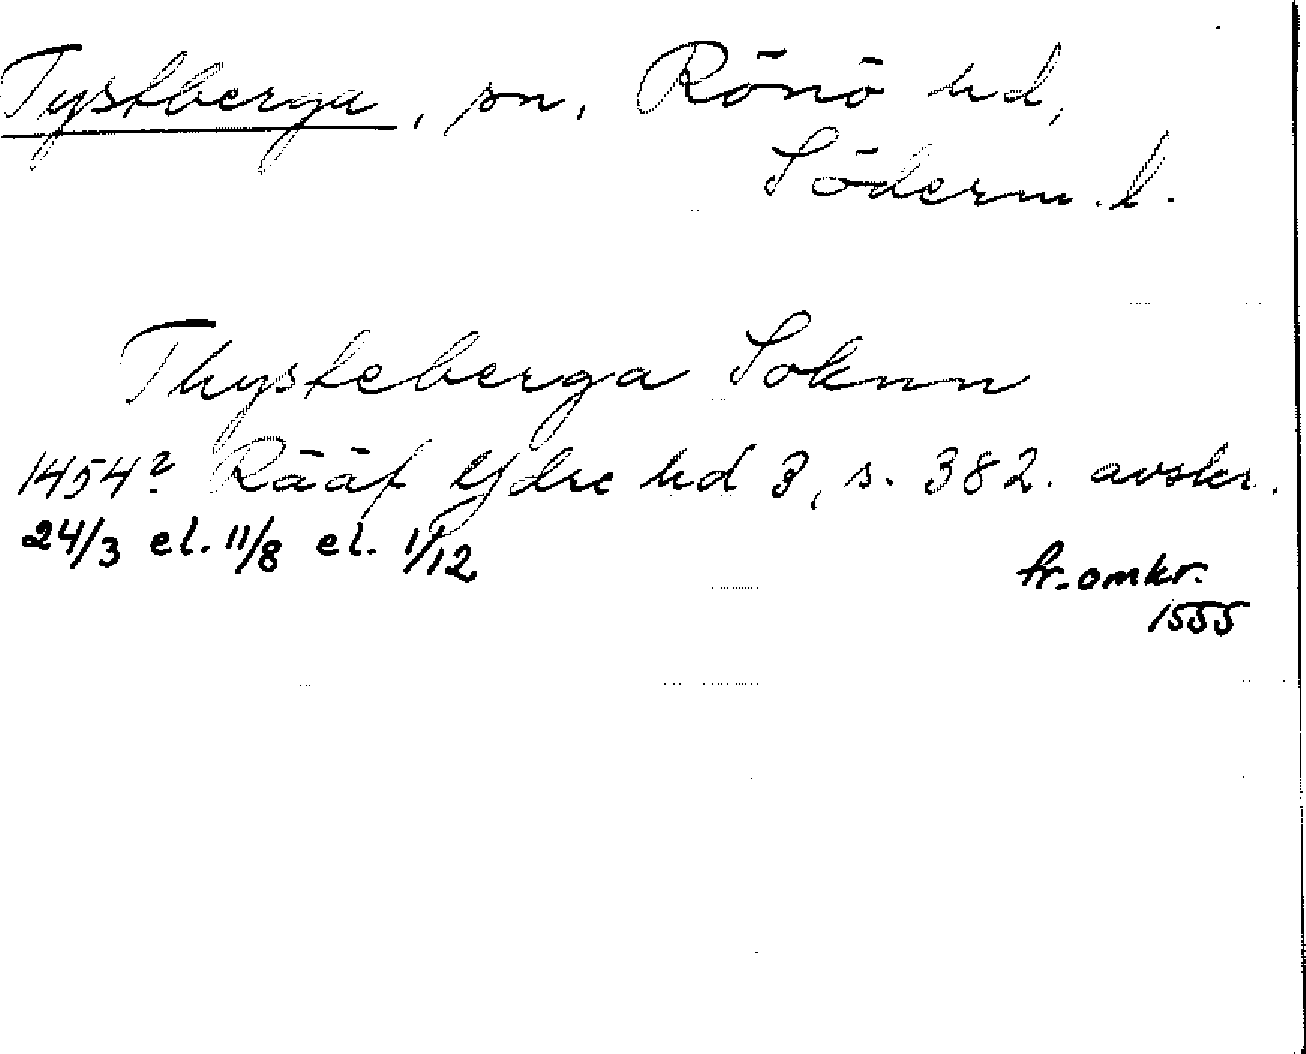 Tystberga, sn, Rönö hd,
Söderm. l.
Thysteberga Soknn
1454? Rääf Ydre hd 3, s. 382. avskr.
24/3 el. 11/8 el. 1/12
fr. omkr.
1555